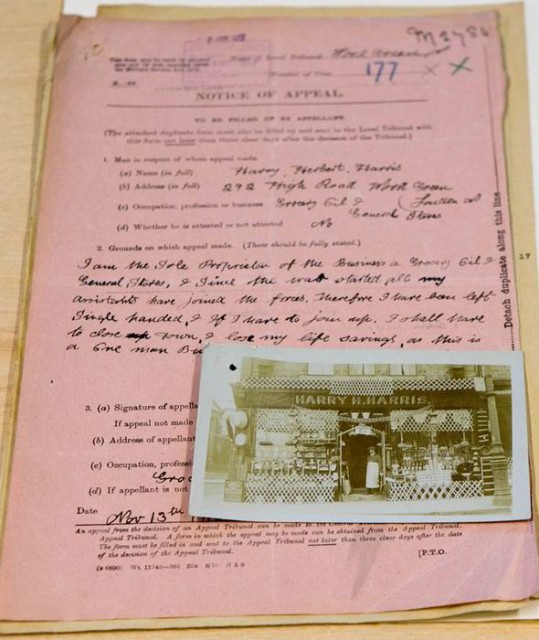 M2782
Name of Local Tribunal Wood Green
Number of Case 177
NOTICE OF APPEAL.
TO BE FILLED UP BY APPELLANT.
(The attached duplicate form must also be filled up and sent to the Local Tribunal with
this form not later than three clear days after the decision of the Tribunal.)
1. Man in respect of whom appeal made.
(a) Name (in full) Harry, Herbert, Harris
(b) Address (in full) 292 High Road Wood Green
(c) Occupation, profession or business Grocery Oil &
General Stores
(d) Whether he is attested or not attested No
2. Grounds on which appeal made. (These should be fully stated.)
I am the Sole Proprietor of the Business a Grocery Oil &
General Stores, & Since the war started all my
assistants have joined the forces. Therefore I have been left
Single handed, & If I have to join up. I shall have
to close up down, & lose my life savings, as this is
a One man Bu
3. (a) Signature of appella
If appeal not made
(b) Address of appellant
(c) Occupation, professi
Groc
(d) If appellant is not
Date Nov 13th
HARRY H. HARRIS
An appeal from the decision of an Appeal Tribunal can be made to the
Appeal Tribunal. A form in which the appeal may be made can be obtained from the Appeal Tribunal.
The form must be filled in and sent to the Appeal Tribunal not later than three clear days after the date
of the decision of the Appeal Tribunal.
[P.T.O.
Detach duplicate along this line